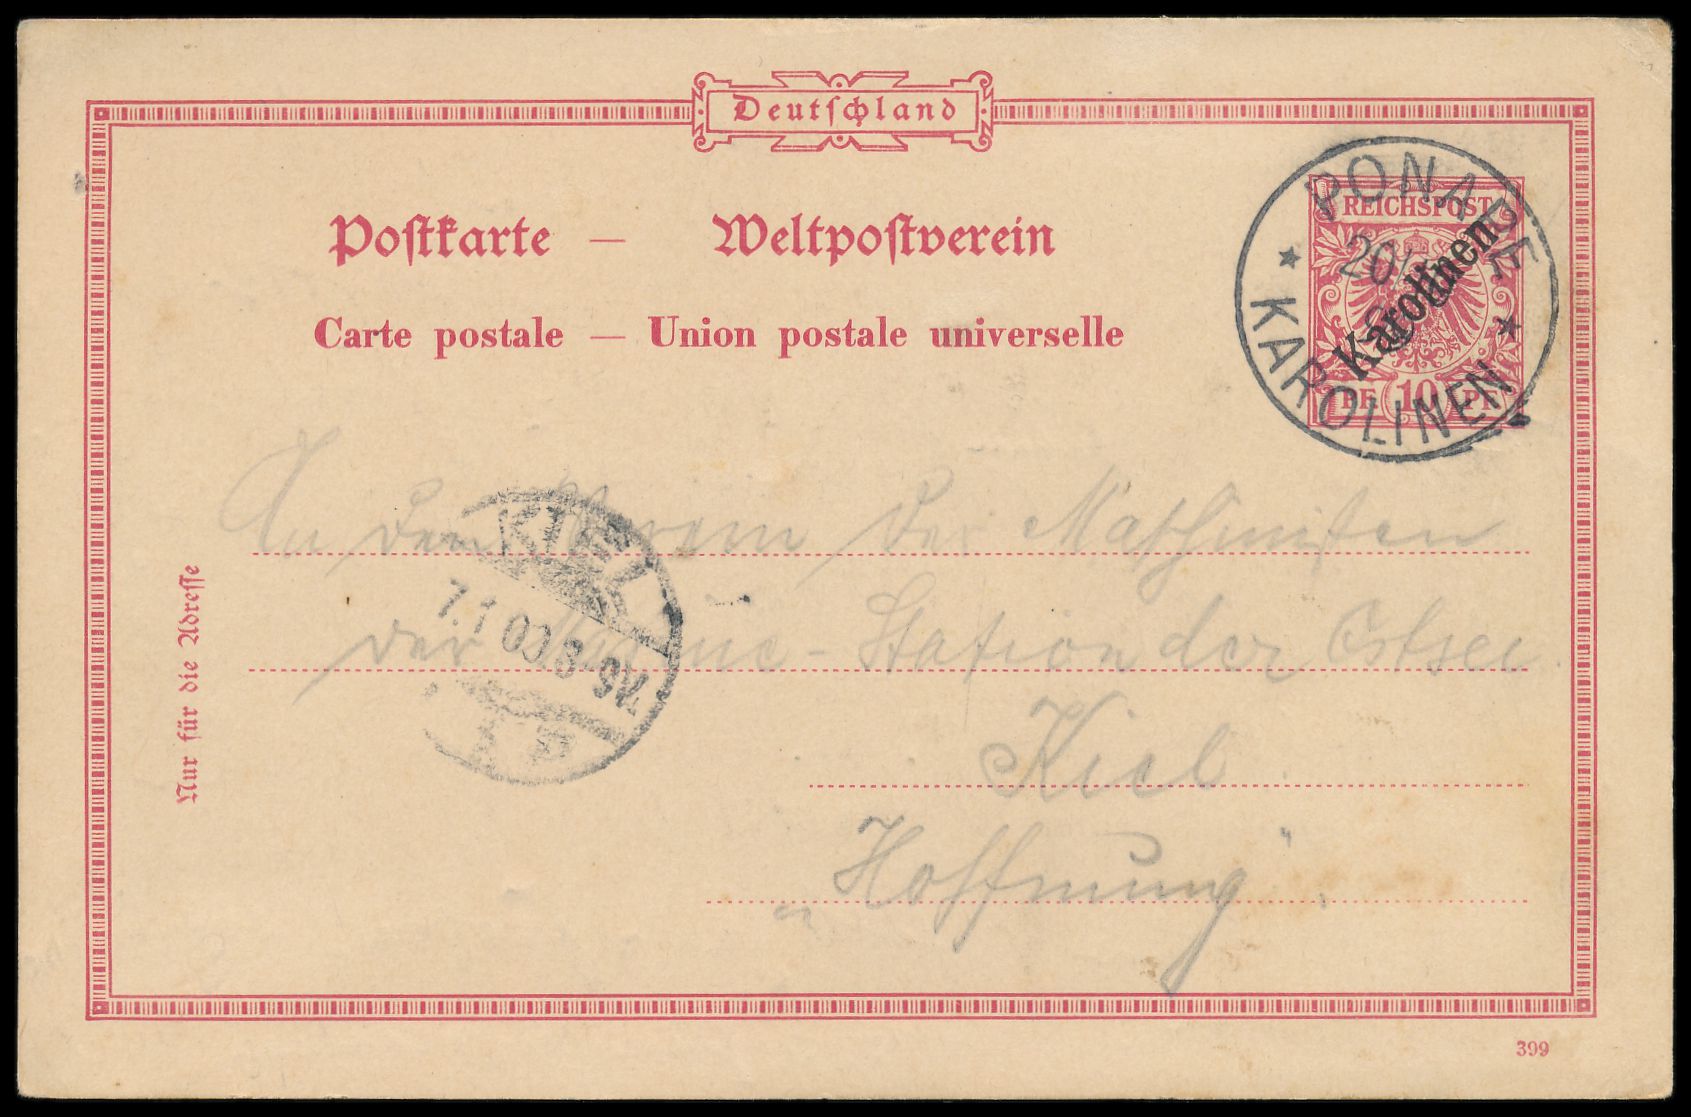 Deutschland
Postkarte — Weltpostverein
Carte postale — Union postale universelle
REICHSPOST
Karolinen
PF 10 PF
PONAPE
20/
KAROLINEN
An den Verein der Maschinisten
der Marine-Station der Ostsee.
Kiel.
„Hoffnung".
KIEL
7.1 00 8-9V.
Nur für die Adresse
399